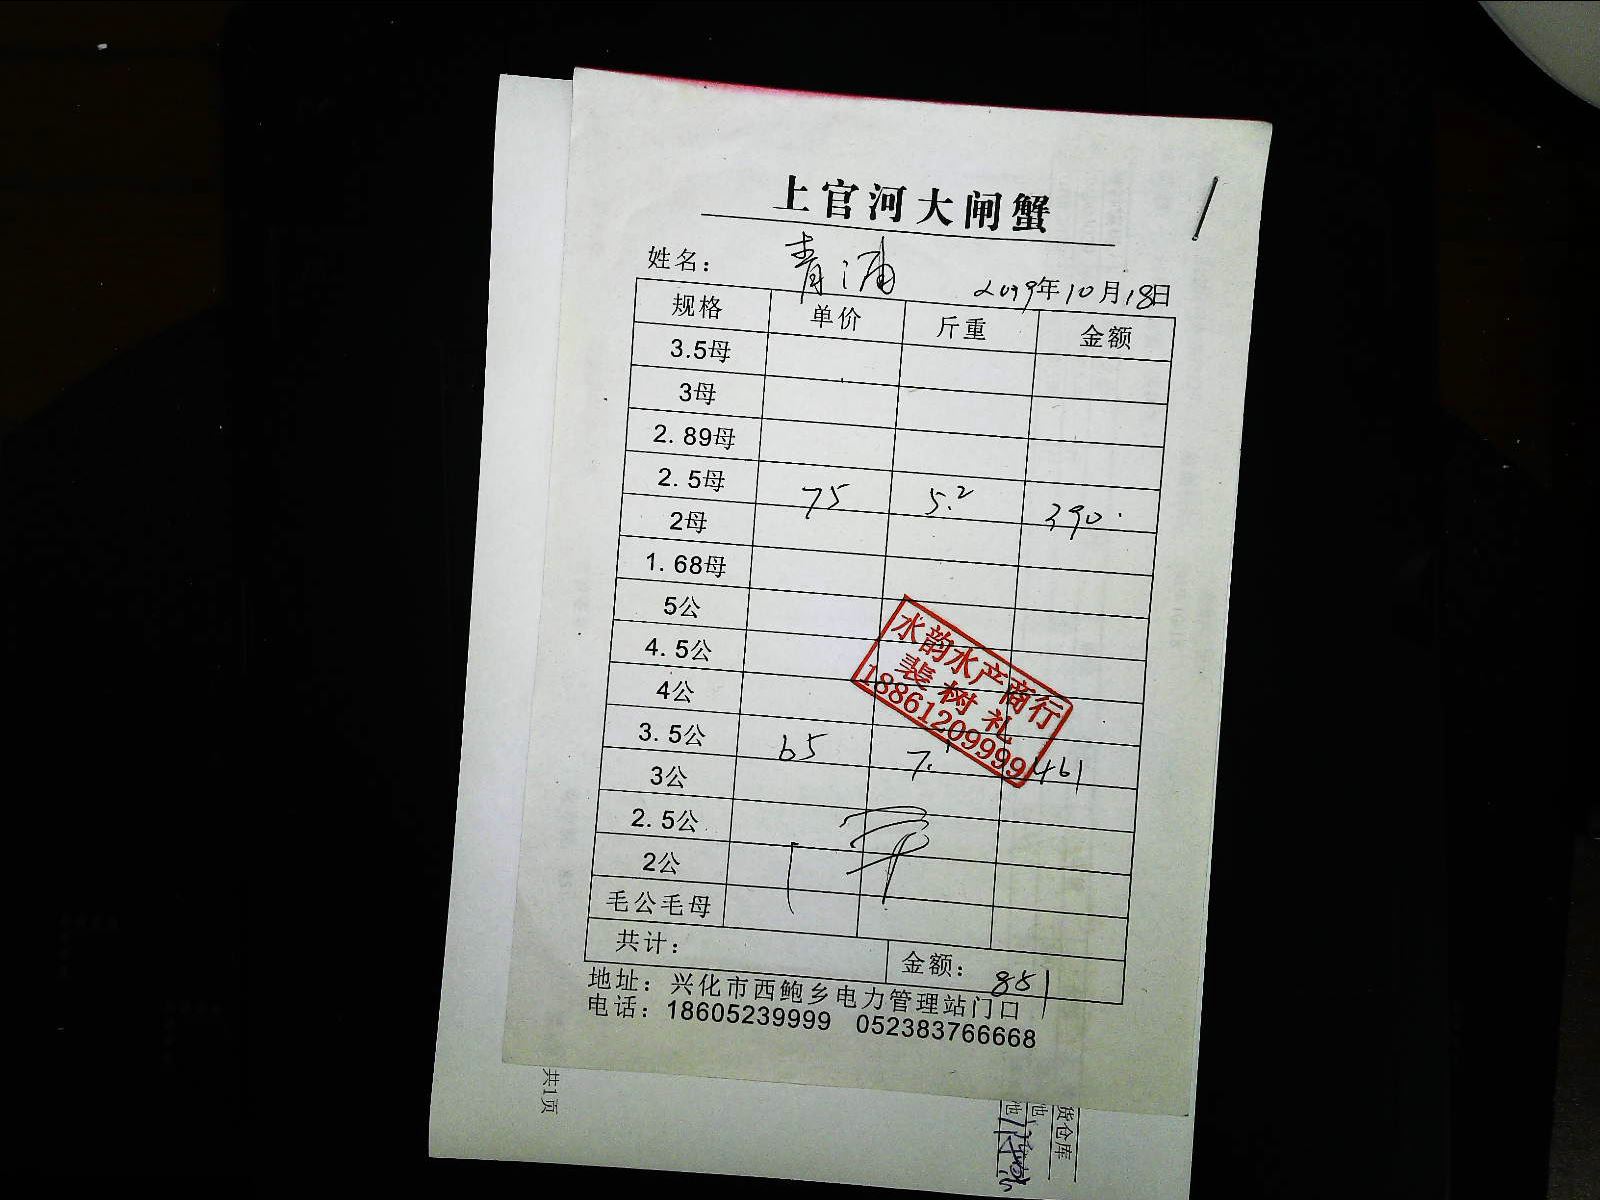 上官河大闸蟹
姓名： 青浦
2019年10月18日
规格 单价 斤重 金额
3.5母
3母
2.89母
2.5母 75 5.2 390
2母
1.68母
5公
4.5公
4公
3.5公 65 7.1 461
3公
2.5公
2公
毛公毛母
共计： 金额：851
地址：兴化市西鲍乡电力管理站门口
电话：18605239999 052383766668
水韵水产商行
裴树礼
18861209999
共1页
货仓库